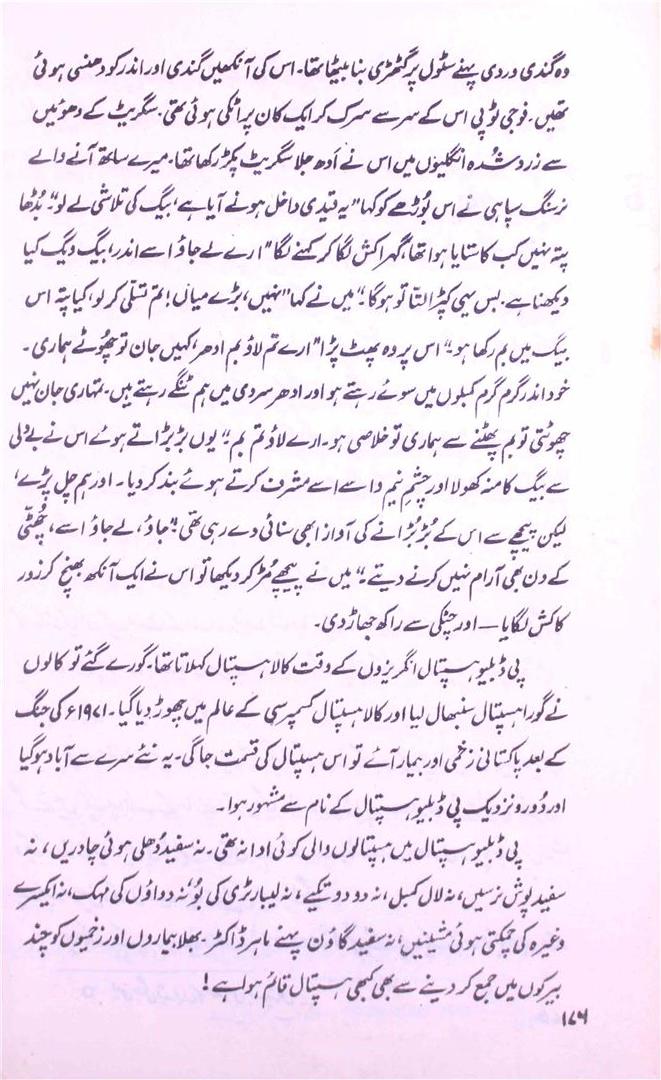 وہ گندی وردی پہنے سٹول پر گٹھڑی بنا بیٹھا تھا۔ اس کی آنکھیں گندی اور اندر کو دھنسی ہوئی
تھیں۔ فوجی ٹوپی اس کے سر سے سرک کر ایک کان پر اٹکی ہوئی تھی۔ سگریٹ کے دھوئیں
سے زرد شُدہ انگلیوں میں اس نے اَدھ جلا سگریٹ پکڑ رکھا تھا۔ میرے ساتھ آنے والے
نرسنگ سپاہی نے اس بُوڑھے کو کہا "یہ قیدی داخل ہونے آیا ہے، بیگ کی تلاشی لے لو"۔ بُڈھا
پتہ نہیں کب کا ستایا ہوا تھا، گہرا کش لگا کر کہنے لگا "ارے لے جاؤ اسے اندر، بیگ ویگ کیا
دیکھنا ہے۔ بس یہی کپڑا لتّا تو ہو گا۔" میں نے کہا "نہیں، بڑے میاں! تم تسلّی کر لو، کیا پتہ اس
بیگ میں بم رکھا ہو۔" اس پر وہ پھٹ پڑا "ارے تم لاؤ بم ادھر، کہیں جان تو چھُوٹے ہماری۔
خود اندر گرم گرم کمبلوں میں سوئے رہتے ہو اور ادھر سردی میں ہم ٹنگے رہتے ہیں۔ تمہاری جان نہیں
چھوٹتی تو بم پھٹنے سے ہماری تو خلاصی ہو۔ ارے لاؤ تم بم۔" یوں بڑبڑاتے ہوئے اس نے بے دلی
سے بیگ کا منہ کھولا اور چشمِ نیم وا سے اسے مشرف کرتے ہوئے بند کر دیا۔ اور ہم چل پڑے،
لیکن پیچھے سے اس کے بُڑبُڑانے کی آواز ابھی سنائی دے رہی تھی! "جاؤ، لے جاؤ اسے، چھُٹّی
کے دن بھی آرام نہیں کرنے دیتے۔" میں نے پیچھے مُڑ کر دیکھا تو اس نے ایک آنکھ بھینچ کر زور
کا کش لگایا — اور چٹکی سے راکھ جھاڑ دی۔
پی ڈبلیو ہسپتال انگریزوں کے وقت کالا ہسپتال کہلاتا تھا۔ گورے گئے تو کالوں
نے گورا ہسپتال سنبھال لیا اور کالا ہسپتال کسمپرسی کے عالم میں چھوڑ دیا گیا۔ ۱۹۷۱ء کی جنگ
کے بعد پاکستانی زخمی اور بیمار آئے تو اس ہسپتال کی قسمت جاگی۔ یہ نئے سرے سے آباد ہو گیا
اور دُور و نزدیک پی ڈبلیو ہسپتال کے نام سے مشہور ہوا۔
پی ڈبلیو ہسپتال میں ہسپتالوں والی کوئی ادا نہ تھی۔ نہ سفید دُھلی ہوئی چادریں، نہ
سفید پوش نرسیں، نہ لال کمبل، نہ دو دو تکیے، نہ لیبارٹری کی بُو، نہ دواؤں کی مہک، نہ ایکسرے
وغیرہ کی چمکتی ہوئی مشینیں، نہ سفید گاؤن پہنے ماہر ڈاکٹر۔ بھلا بیماروں اور زخمیوں کو چند
بیرکوں میں جمع کر دینے سے بھی کبھی ہسپتال قائم ہوا ہے!
۱۷۶